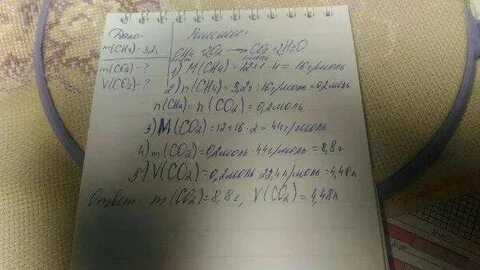 Дано:
m(CH4)=3,2г
m(CO2)-?
V(CO2)-?
Решение:
CH4+2O2 → CO2+2H2O
1) M(CH4)=12+1·4=16 г/моль
2) n(CH4)=3,2г:16г/моль=0,2моль
n(CH4)=n(CO2)=0,2моль
3) M(CO2)=12+16·2=44г/моль
4) m(CO2)=0,2моль·44г/моль=8,8г
5) V(CO2)=0,2моль·22,4л/моль=4,48л
Ответ: m(CO2)=8,8г, V(CO2)=4,48л